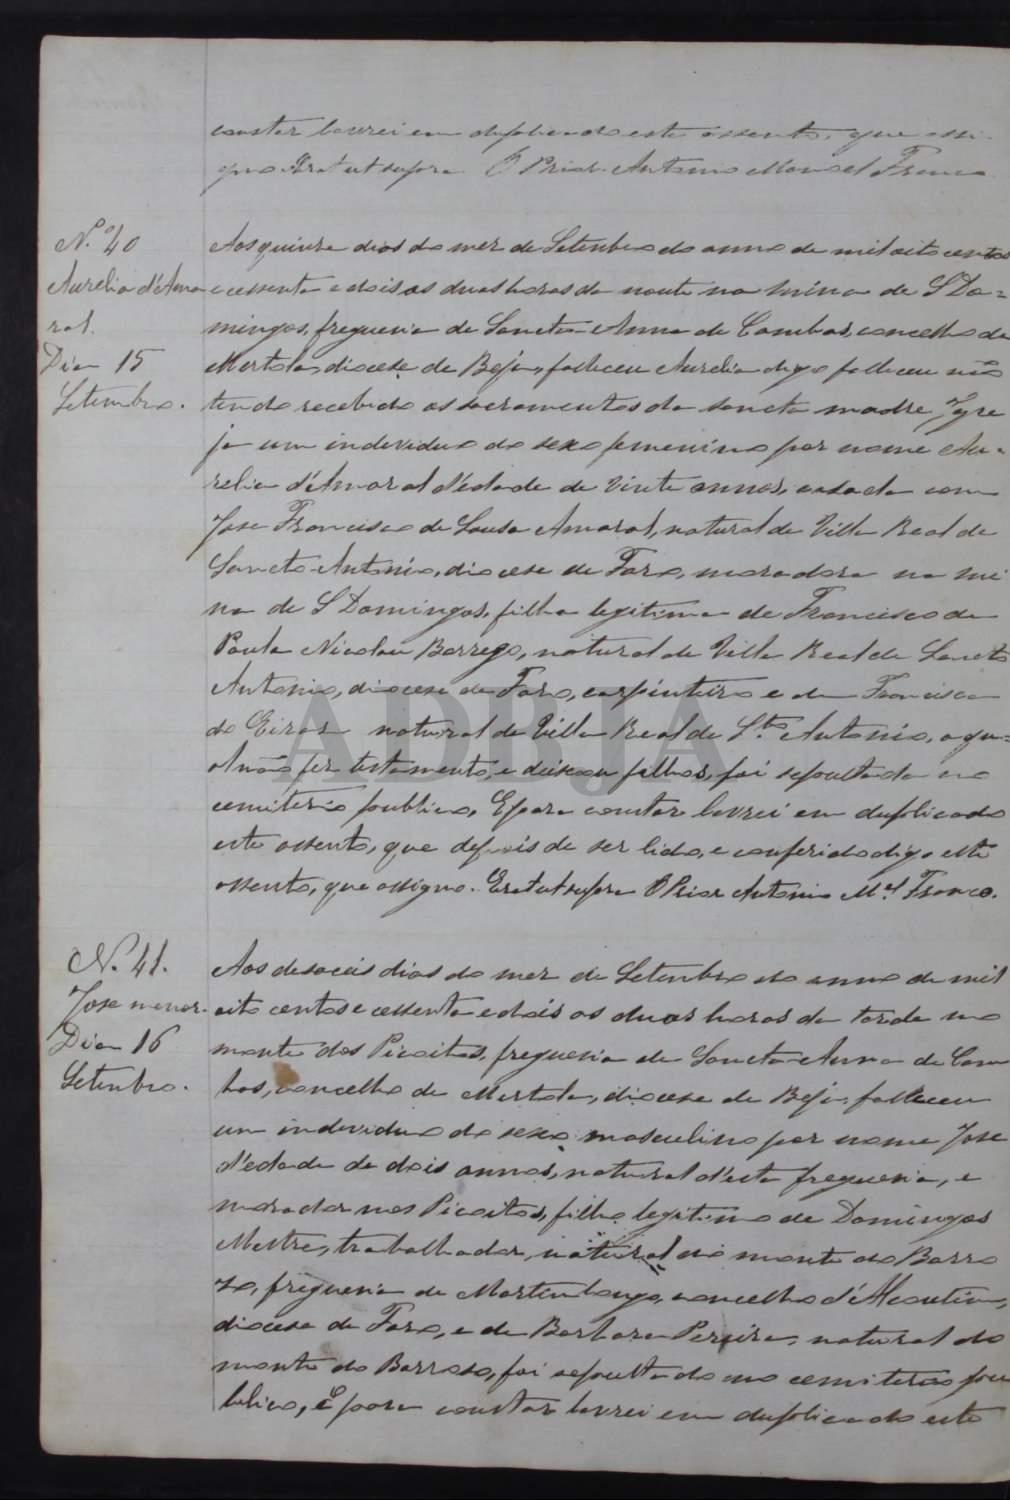 constar lavrei em duplicado este assento, que assi-
gno. Era ut supra O Prior Antonio Manoel Franco
N.º 40
Aurelia d'Ama
ral.
Dia 15
Setembro.
Aos quinze dias do mez de Setembro do anno de mil oito centos
e cessenta e dois as duas horas da noute na mina de S Do-
mingos, freguezia de Sancta Anna de Cambas, concelho de
Mertola, diocese de Beja, falleceu Aurelia digo falleceu não
tendo recebido os sacramentos da sancta madre Igre
ja um individuo do sexo femenino por nome Au-
relia d'Amaral d'édade de vinte annos, casada com
Jose Francisco de Sousa Amaral, natural de Villa Real de
Sancto Antonio, diocese de Faro, moradora na mi
na de S Domingos, filha legitima de Francisco de
Paula Nicolau Barrego, natural de Villa Real de Sancto
Antonio, diocese de Faro, carpinteiro e de Francisca
do natural de Villa Real de S.to Antonio, a qu-
al não fez testamento, e deixou filhos, foi sepultada no
cemiterio publico, E para constar lavrei em duplicado
este assento, que depois de ser lido, e conferido digo este
assento, que assigno. Era ut supra O Prior Antonio M.el Franco.
N. 41.
Jose menor.
Dia 16
Setembro.
Aos desaceis dias do mez de Setembro do anno de mil
oito centos e cessenta e dois as duas horas da tarde no
monte dos Picoitos, freguezia de Sancta Anna de Cam
bas, concelho de Mertola, diocese de Beja, falleceu
um individuo do sexo masculino por nome Jose
d'edade de dois annos, natural d'esta freguezia, e
morador nos Picoitos, filho legitimo de Domingos
Mestre, trabalhador, natural do monte do Barro
zo, freguezia de Martim longo, concelho d'Alcoutim,
diocese de Faro, e de Barbara Pereira, natural do
monte do Barroso, foi sepultado no cemiterio pu
blico, E para constar lavrei em duplicado este
ADBJA